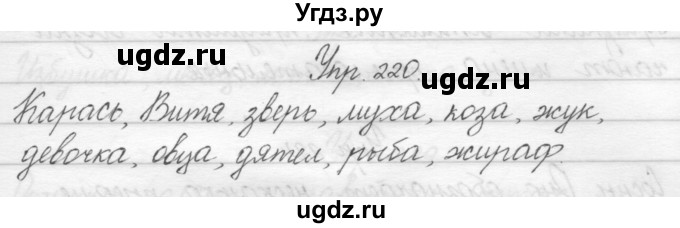 Угдз.ру
ugdz.ru
ugdz.ru
Упр. 220.
Карась, Витя, зверь, муха, коза, жук,
ugdz.ru
девочка, овца, дятел, рыба, жираф.
ugdz.ru
ugdz.ru